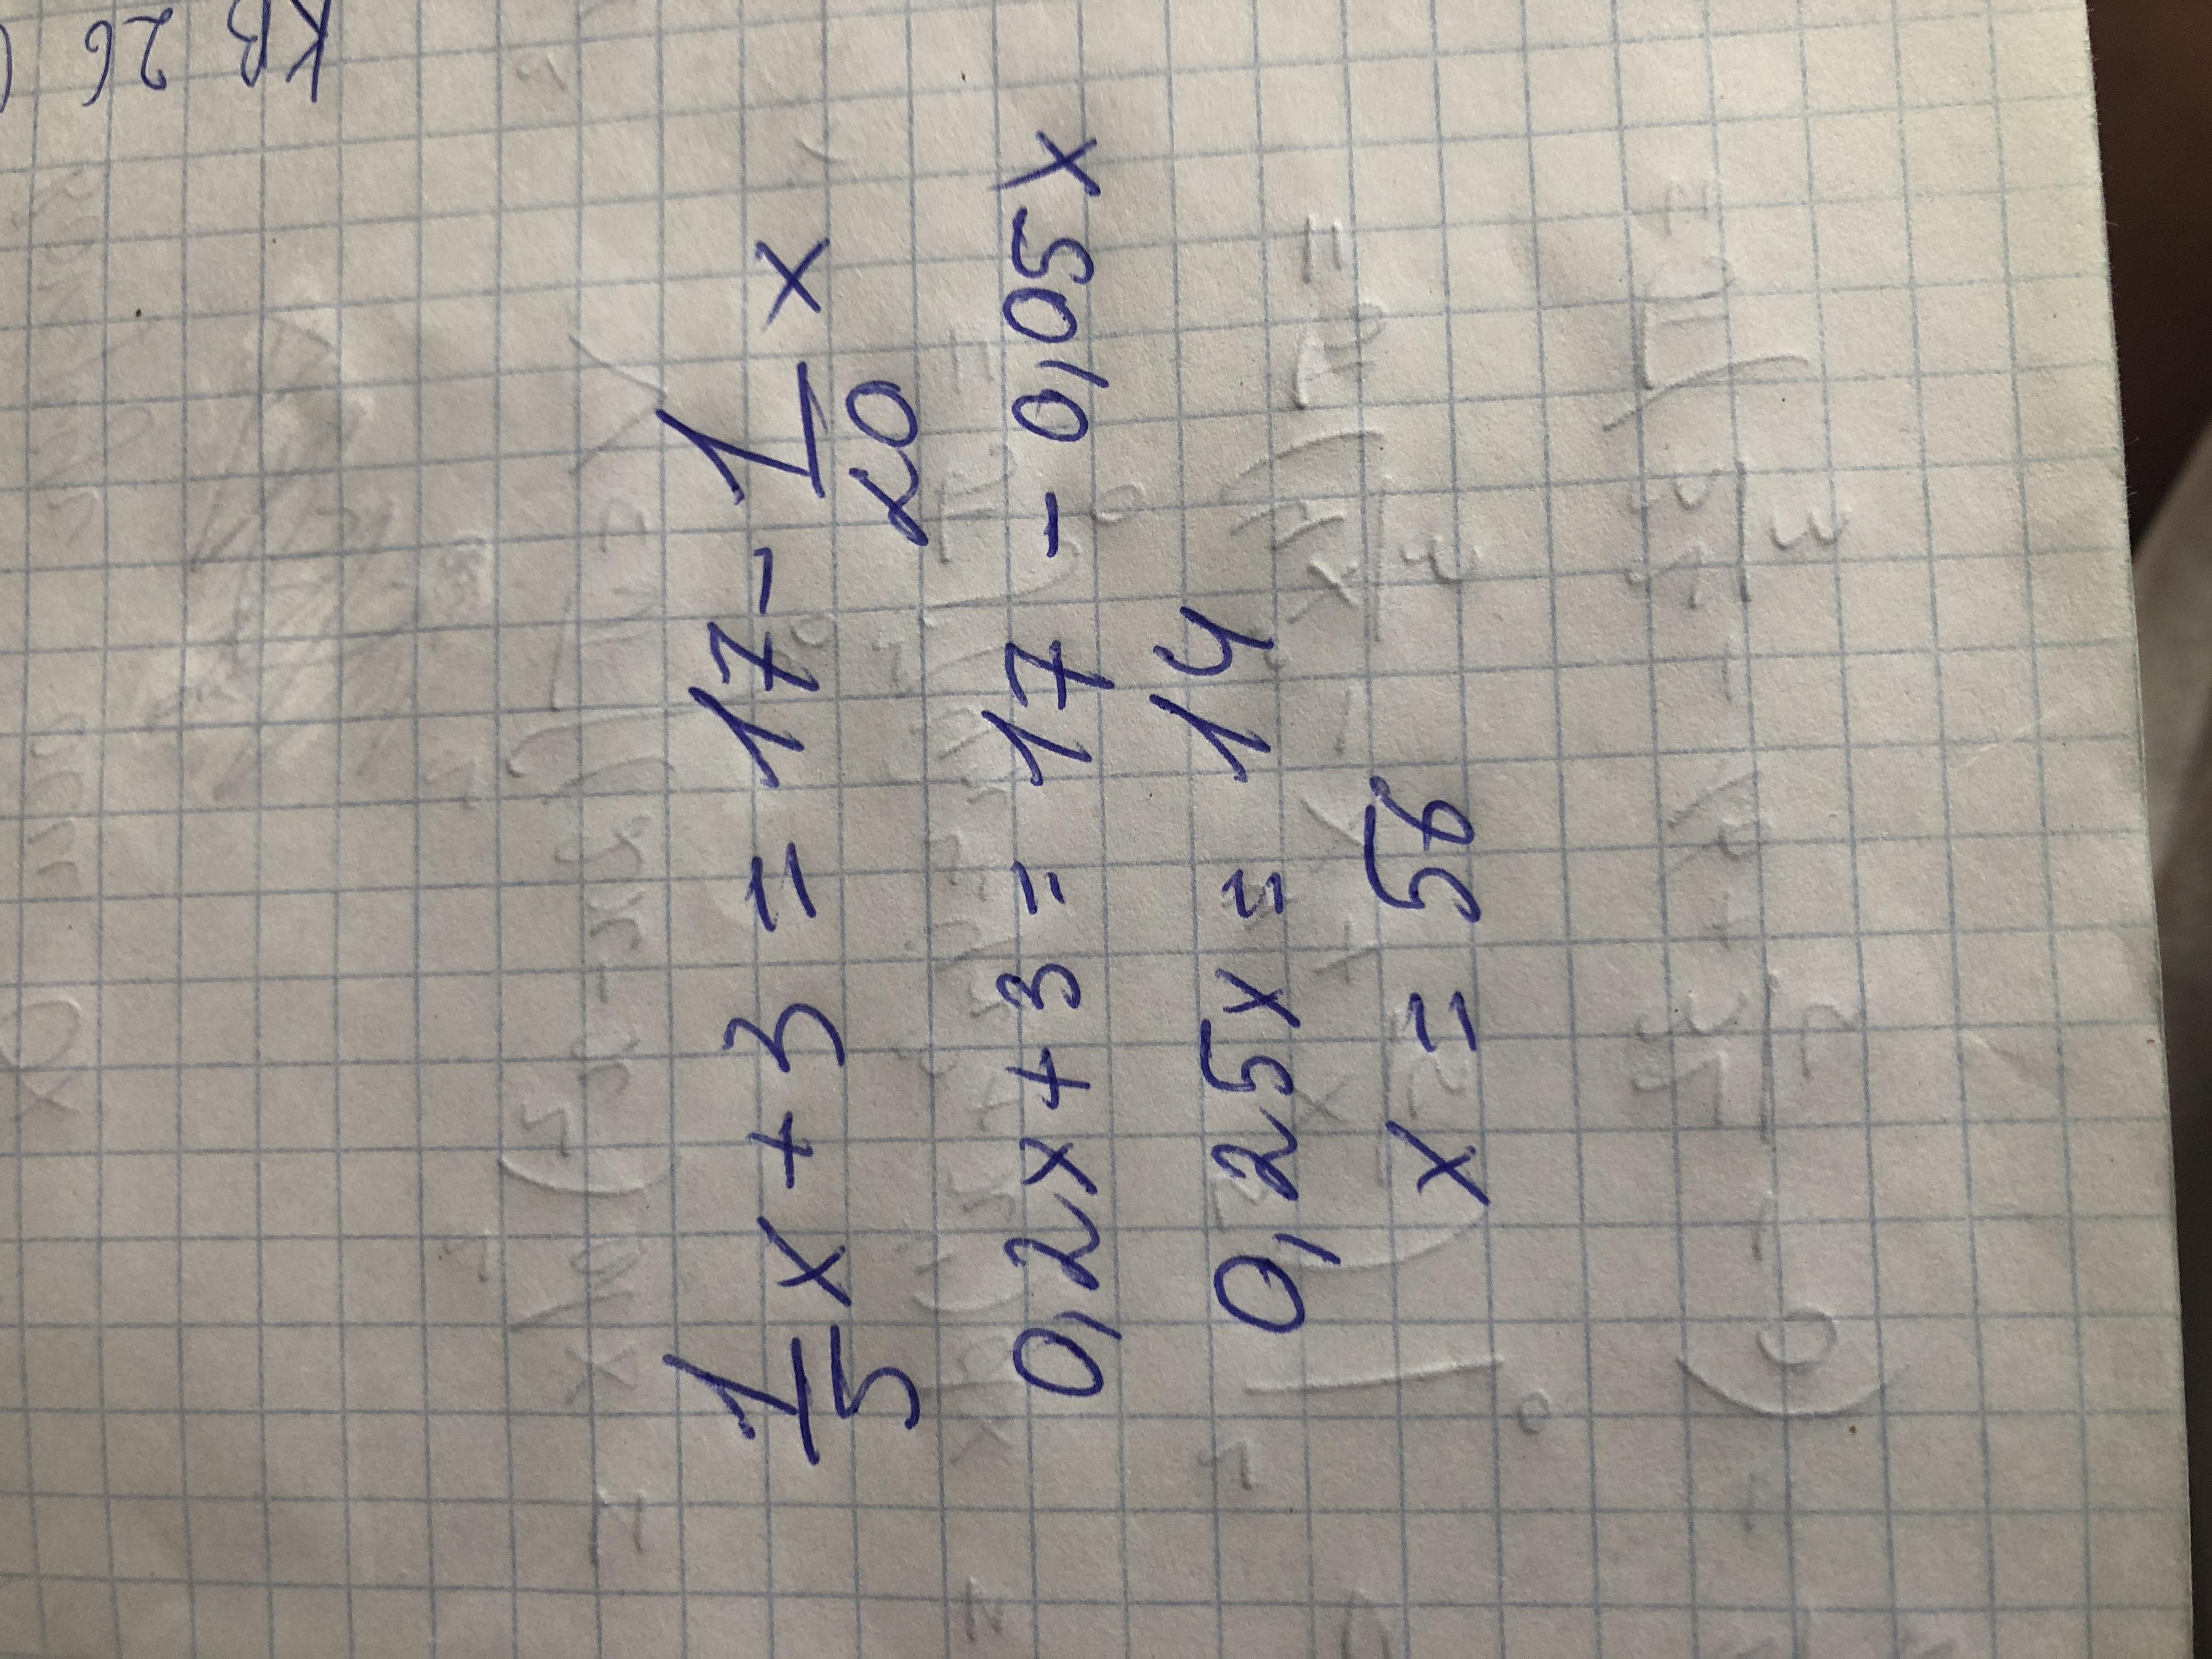 КВ 26
1/5 x + 3 = 17 - 1/20 x
0,2x + 3 = 17 - 0,05x
0,25x = 14
x = 56